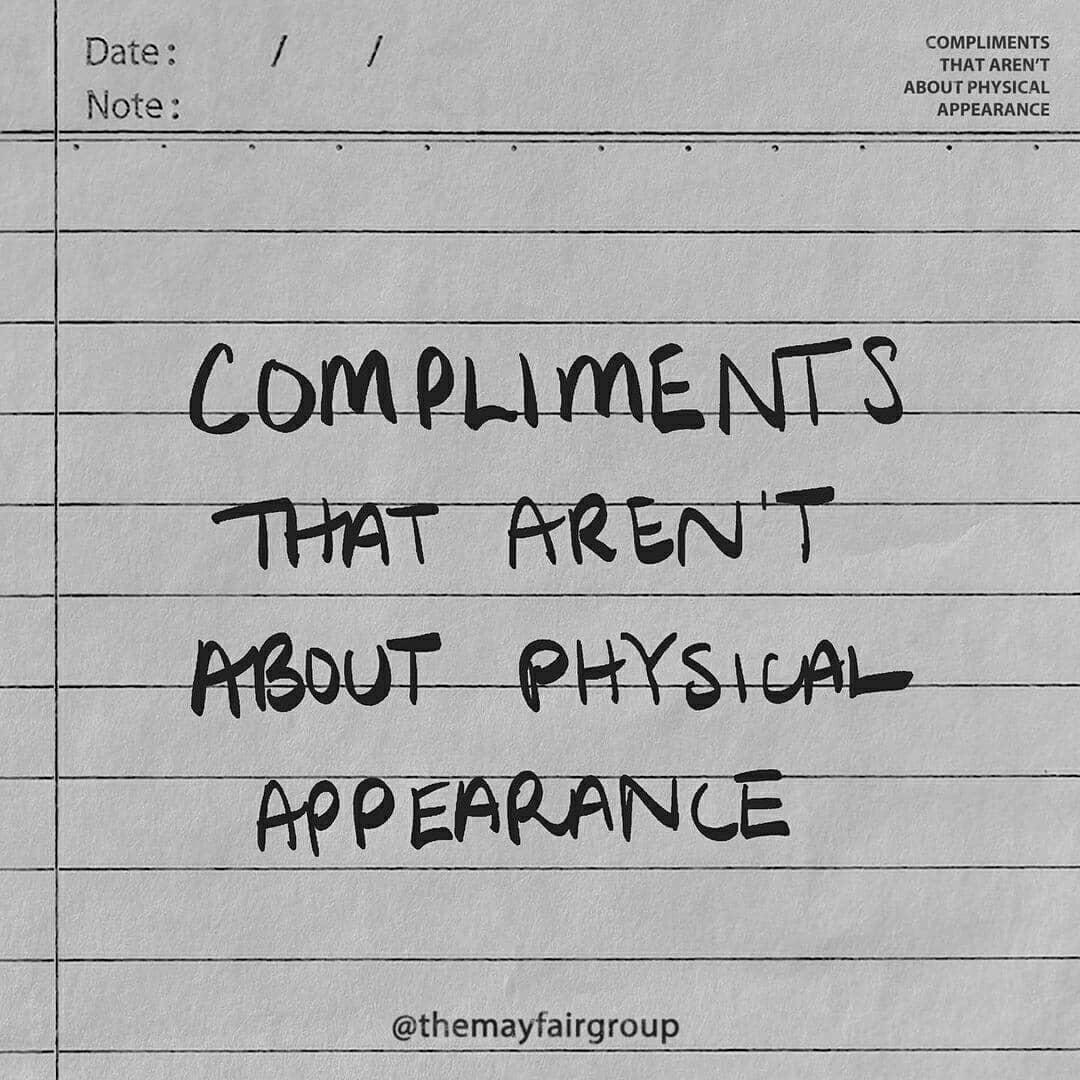 Date: / /
Note:
COMPLIMENTS
THAT AREN'T
ABOUT PHYSICAL
APPEARANCE
COMPLIMENTS
THAT AREN'T
ABOUT PHYSICAL
APPEARANCE
@themayfairgroup